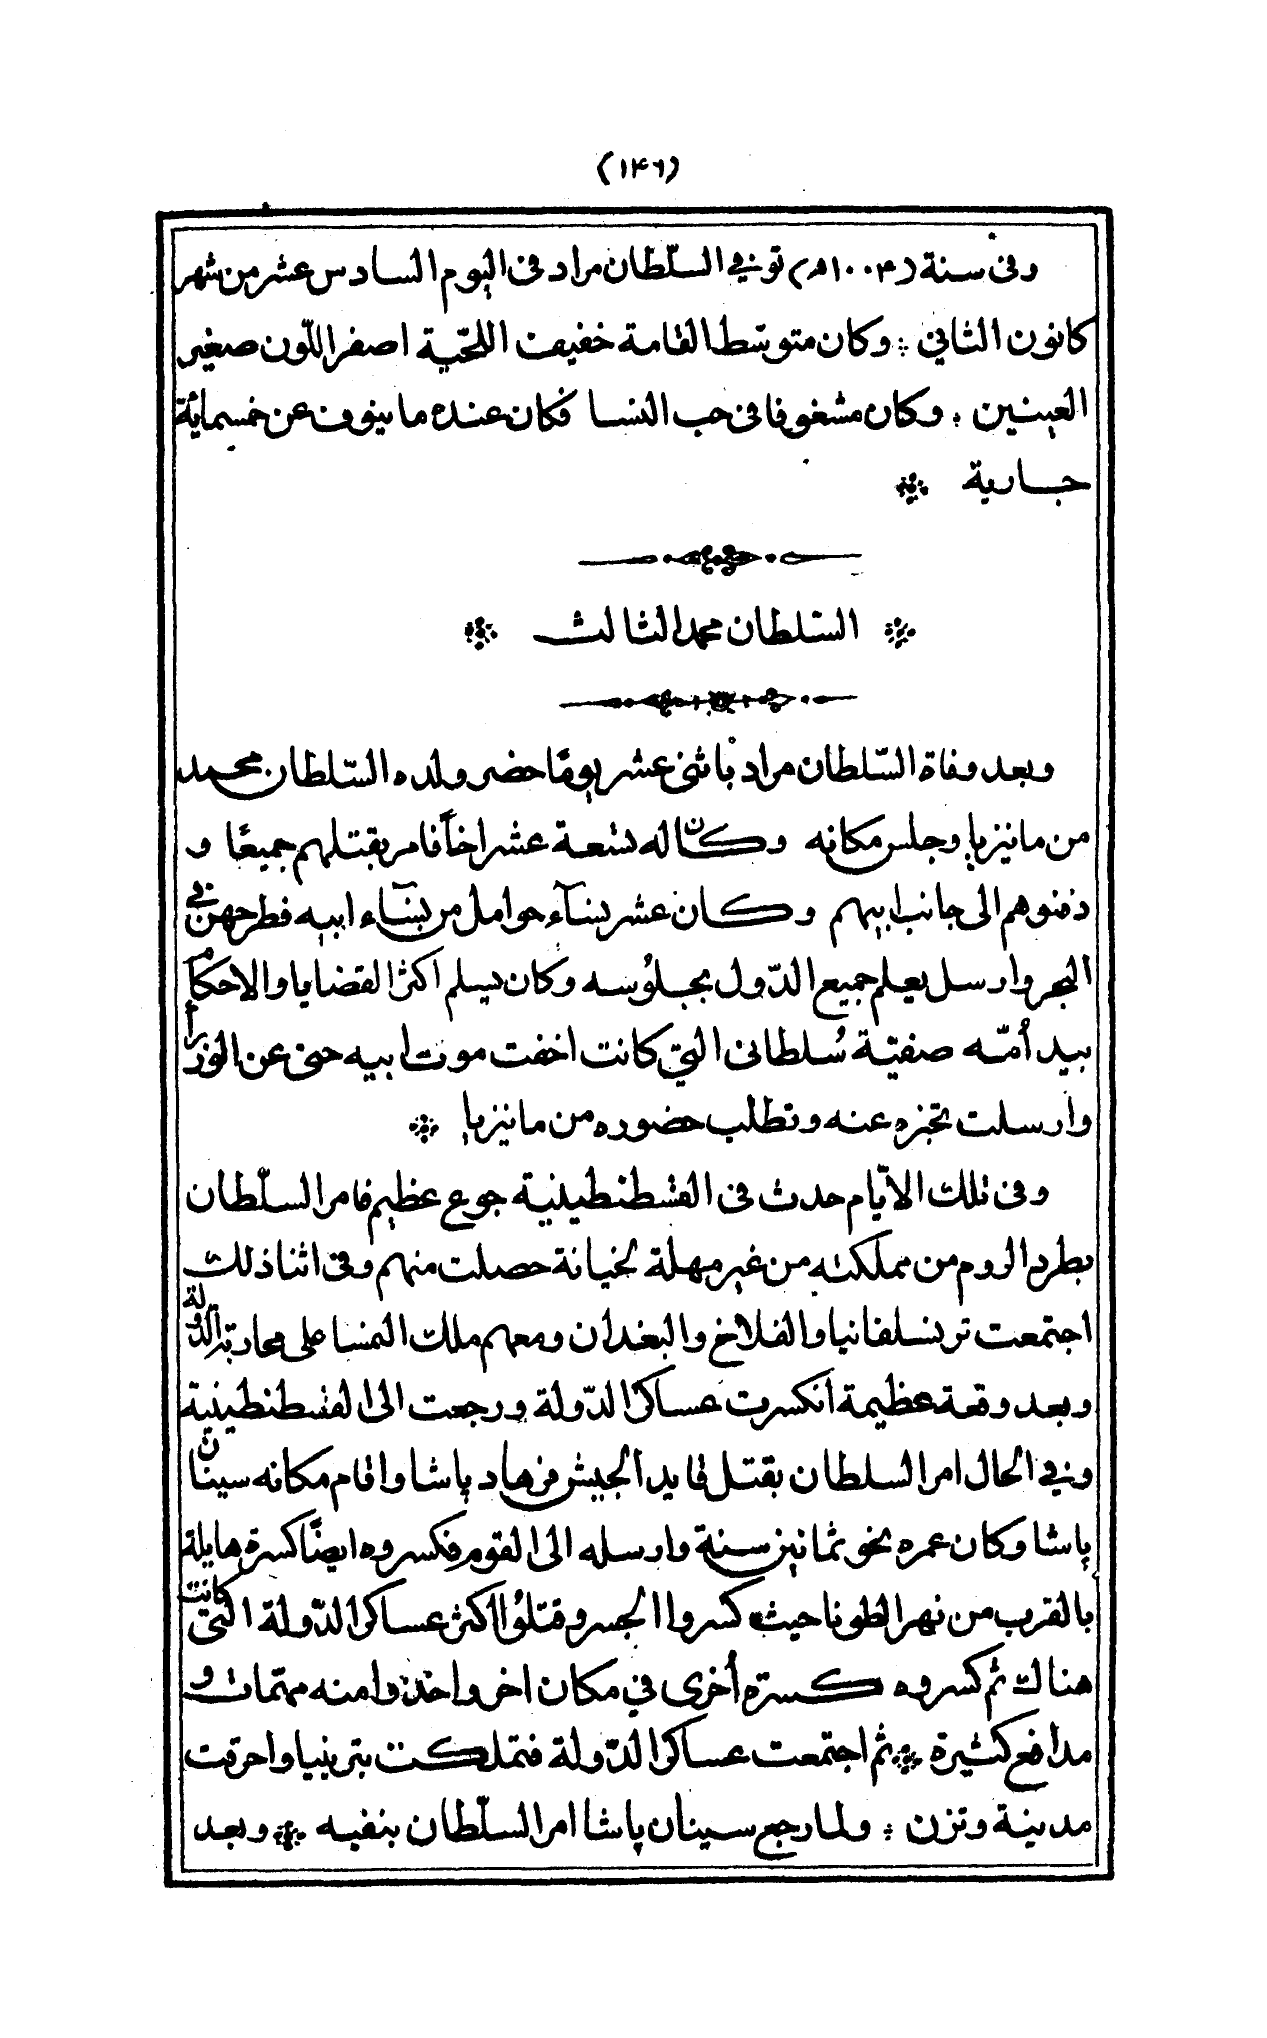 (١٤٦)
وفى سنة (١٠٠٤هـ) توفي السلّطان مراد فى اليوم السادس عشر من شهر
كانون الثاني ؞ وكان متوسّط القامة خفيف اللحّية اصفر اللّون صغير
العينين ؞ وكان مشغوفا فى حب النسا فكان عنده ما ينوف عن خمسماية
جارية ۞
۞ السّلطان محمد الثالث ۞
وبعد وفاة السّلطان مراد باثنى عشر يومًا حضر ولده السّلطان محمد
من مانيزيا وجلس مكانه وكان له تسعة عشر اخاً فامر بقتلهم جميعًا و
دفنوهم الى جانب ابيهم وكان عشر نسآء حوامل من نسآء ابيه فطرحهن في
البحر وارسل يعلم جميع الدّول بجلوُسه وكان يسلم اكثر القضايا والاحكام
بيد أمّه صفيّة سُلطانى التي كانت اخفت موت ابيه حتى عن الوزرا
وارسلت تخبره عنه وتطلب حضوره من مانيزيا ۞
وفى تلك الايّام حدث فى القسطنطينية جوع عظيم فامر السلّطان
بطرد الروم من مملكته من غير مهلة لخيانة حصلت منهم وفى اثنا ذلك
اجتمعت ترنسلفانيا والفلاخ والبغدان ومعهم ملك النمسا على محاربة الدولة
وبعد وقعة عظيمة انكسرت عساكر الدّولة ورجعت الى القسطنطينية
وفي الحال امر السلطان بقتل قايد الجيش فرهاد پاشا واقام مكانه سينان
پاشا وكان عمره نحو ثمانين سنة وارسله الى القوم فكسروه ايضًا كسرة هايلة
بالقرب من نهر الطونا حيث كسروا الجسر وقتلوُا اكثر عساكر الدّولة التي كانت
هناك ثم كسروه كسرة أخرى في مكان اخر واخذوا منه مهمّات و
مدافع كثيرة ۞ ثم اجتمعت عساكر الدّولة فتملكت بترينيا واحرقت
مدينة وتزن ؞ ولما رجع سينان پاشا امر السلّطان بنفيه ۞ وبعد